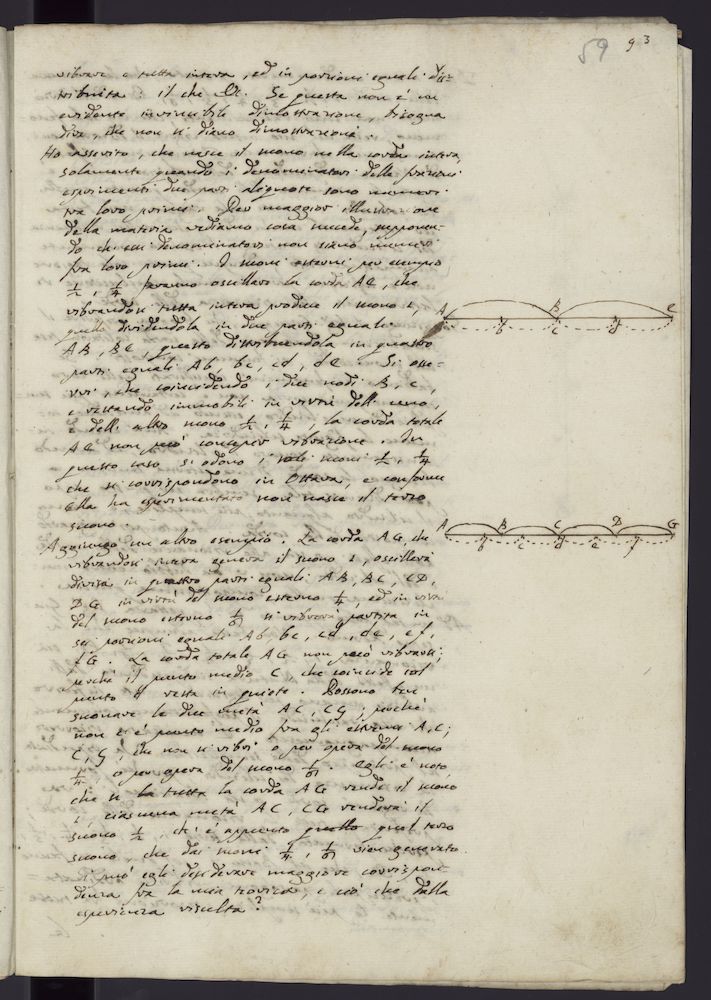 59 93
vibrare e tutta intera, ed in porzioni eguali dis-
tribuita: il che &c. Se questa non è una
evidente invincibile dimostrazione, bisogna
dire, che non si diano dimostrazioni.
Ho asserito, che nasce il suono nella corda intera,
solamente quando i denominatori delle frazioni
esprimenti due parti aliquote sono numeri
tra loro primi. Per maggior illustrazione
della materia vediamo cosa succede, supponen-
do che essi denominatori non siano numeri
fra loro primi. I suoni esterni per esempio
1/2, 1/4 faranno oscillare la corda AE, che
vibrandosi tutta intera produce il suono 1,
quello dividendola in due parti eguali
AB, BE, questo distribuendola in quattro
parti eguali Ab, bc, cd, de. Si osse-
rvi, che coincidendo i due nodi B, c,
e restando immobili in virtù dell' uno,
e dell' altro suono 1/2, 1/4, la corda totale
AE non può concepir vibrazione. In
questo caso si odono i soli suoni 1/2, 1/4
che si corrispondono in Ottava, e conforme
Ella ha esperimentato non nasce il terzo
suono.
Aggiungo un altro esempio. La corda AG, che
vibrandosi intera genera il suono 1, oscillerà
divisa in quattro parti eguali AB, BC, CD,
DG in virtù del suono esterno 1/4, ed in virtù
del suono esterno 1/6 si vibrerà partita in
sei porzioni eguali Ab, bc, cd, de, ef,
fG. La corda totale AG non può vibrarsi;
perchè il punto medio C, che coincide col
punto d resta in quiete. Possono ben
suonare le due metà AC, CG; perchè
non vi è punto medio fra gli estremi A, C;
C, G, che non si vibri o per opera del suono
1/4, o per opera del suono 1/6. Egli è noto,
che se la tutta la corda AG rende il suono
1, ciascuna metà AC, CG renderà il
suono 1/2, ch' è appunto quello quel terzo
suono, che dai suoni 1/4, 1/6 vien generato.
Si può egli desiderare maggiore corrispon-
denza fra la mia teorica, e ciò che dalla
esperienza risulta?
A B E
b c d
A B C D G
b c d e f